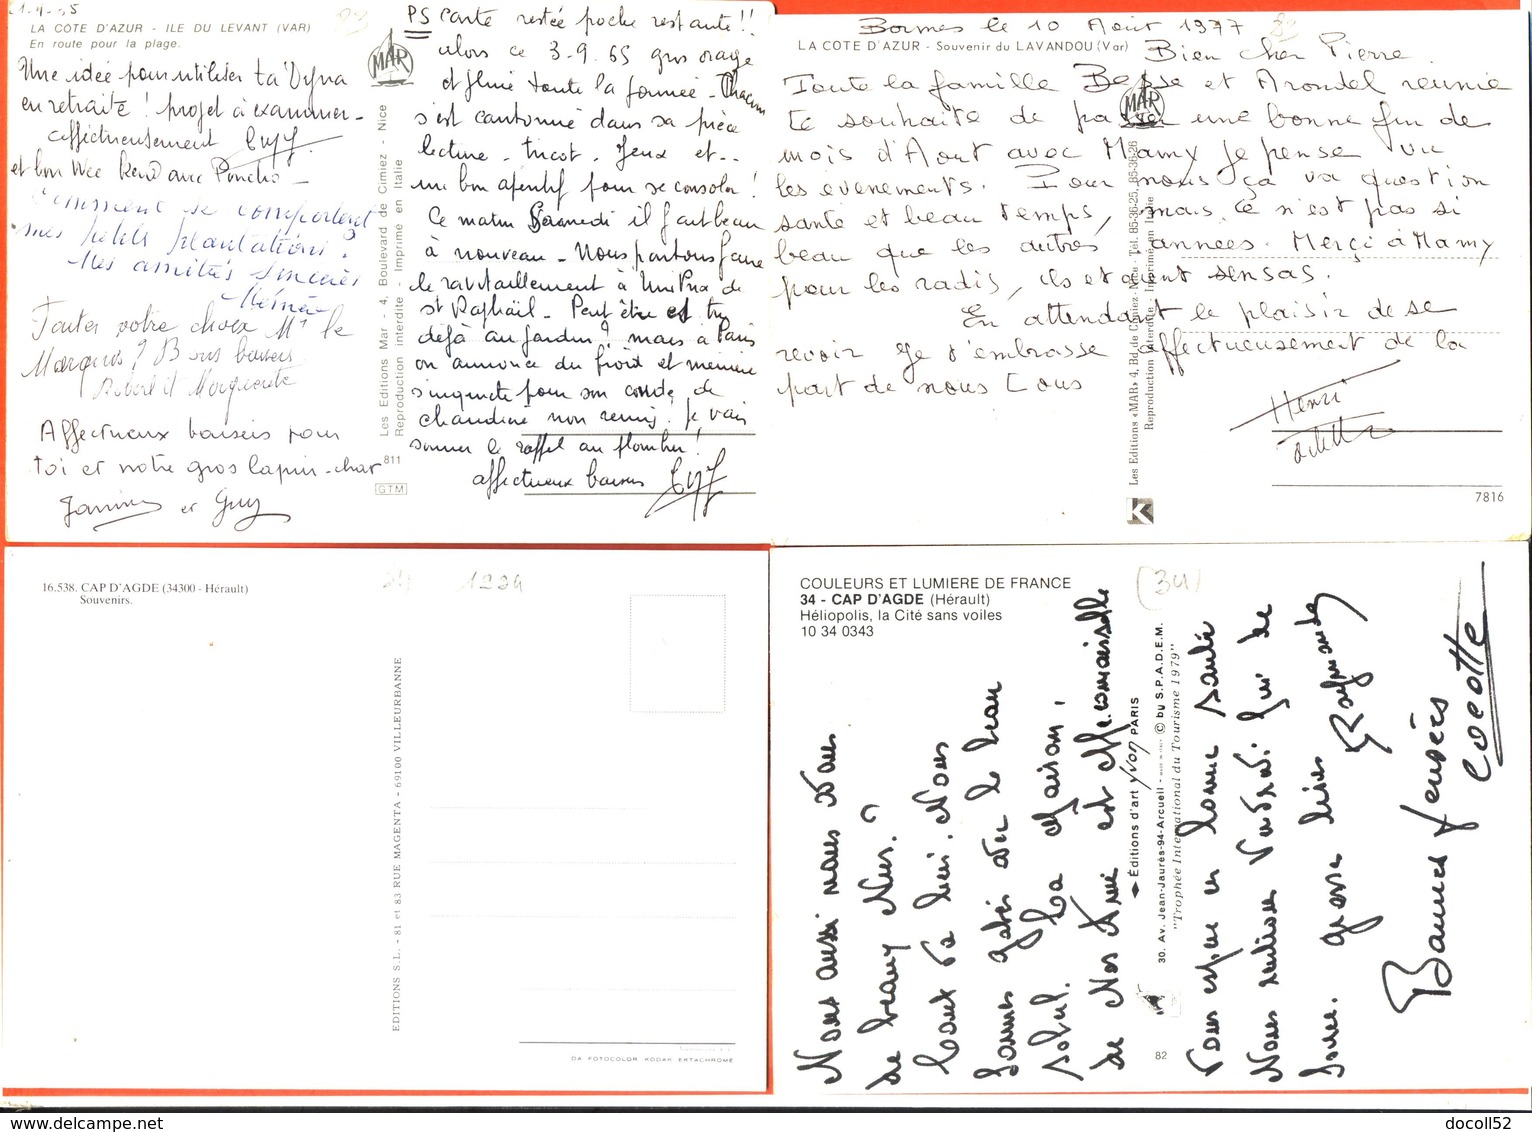 LA COTE D'AZUR - ILE DU LEVANT (VAR)
En route pour la plage.
Une idée pour utiliser ta Dyna
en retraite ! projet à examiner -
affectueusement
et bon Wee Kend avec Poncho -
Comment se comportent
mes petits plantations ?
Mes amitiés sincères
Mémée
Toutes votre choix Mr le
Marquis ? Bons baisers
Robert et Marguerite
Affectueux baisers pour
toi et notre gros lapin - char
Janine et Guy
MAR
Les Editions Mar - 4, Boulevard de Cimiez - Nice
Reproduction interdite - Imprimé en Italie
811
GTM
PS Carte restée poche restante !!
alors ce 3-9.65 gros orage
et pluie toute la journée - Chacun
s'est cantonné dans sa pièce
lecture - tricot - Jeux et ..
un bon apéritif pour se consoler !
Ce matin il fait beau
à nouveau - Nous partons faire
le ravitaillement à UniPrix de
St Raphaël - Peut être es tu
déjà au jardin ? mais à Paris
on annonce du froid et mémère
s'inquiète pour son coude de
chaudière non remis ! je vais
sonner le rappel au plombier !
affectueux baisers
Bormes le 10 Août 1977
LA COTE D'AZUR - Souvenir du LAVANDOU (Var)
Bien cher Pierre
Toute la famille Besse et Arondel reunie
te souhaite de passer une bonne fin de
mois d'Aout avec Mamy je pense vu
les evenements. Pour nous ça va question
santé et beau temps, mais ce n'est pas si
beau que les autres années. Merçi à Mamy
pour les radis, ils etaient sensas.
En attendant le plaisir de se
revoir je t'embrasse affectueusement de la
part de nous tous
Henri
MAR
Les Editions «MAR» 4, Bd de Cimiez - Nice - Tél. 85-36-25, 85-36-26
Reproduction interdite - Imprimé en Italie
K
7816
16.538. CAP D'AGDE (34300 - Hérault)
Souvenirs.
34
1224
EDITIONS S.L. - 81 et 83 RUE MAGENTA - 69100 VILLEURBANNE
DA FOTOCOLOR KODAK EKTACHROME
COULEURS ET LUMIERE DE FRANCE
34 - CAP D'AGDE (Hérault)
Héliopolis, la Cité sans voiles
10 34 0343
(34)
Nous aussi nous avons
de beaux Nus.
tout va bien. Nous
sommes gatés avec le beau
soleil. La Maison,
de Nos Amis est
Editions d'art yvon PARIS
30. Av. Jean-Jaurès-94-Arcueil - © by S.P.A.D.E.M.
"Trophée International du Tourisme 1979"
82
Vous espère en bonne santé
Nous rentrons Vendredi fin de
grosse bises Raymonde
Bonnes pensées
Cocotte
docoll52